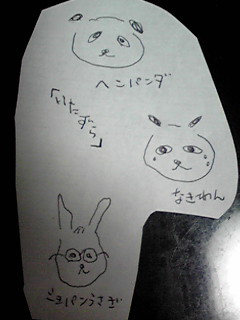 ヘンパンダ
「いたずら」
なきわん
ショパンうさぎ